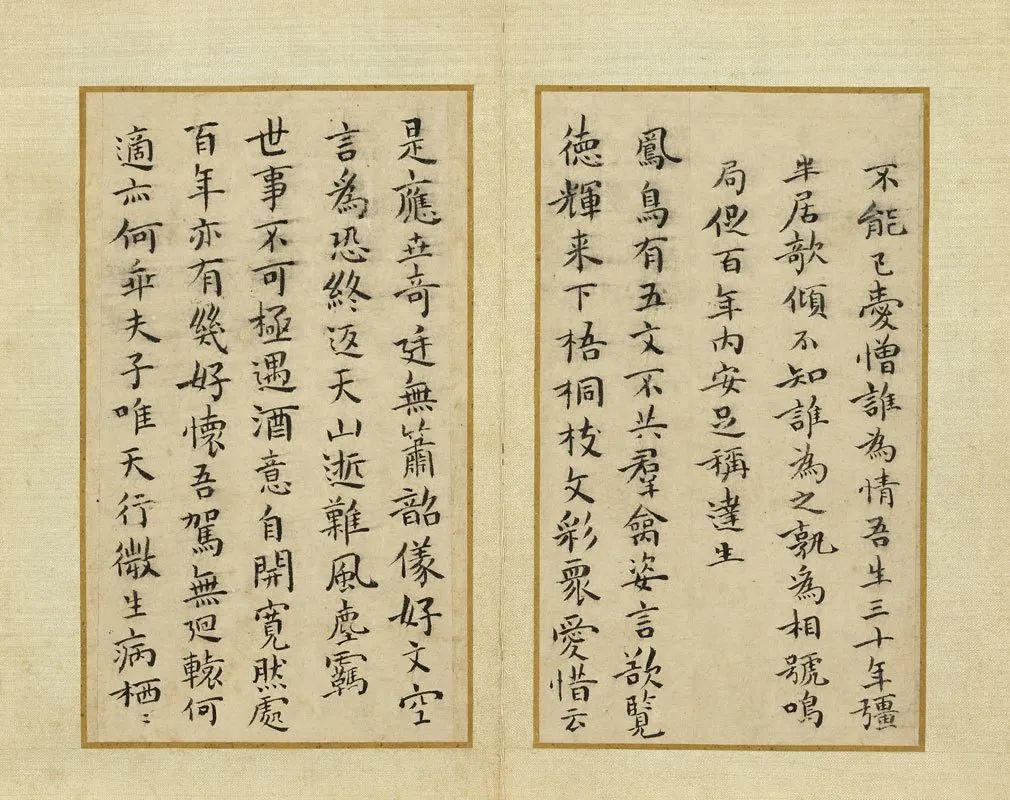 不能已憂憎誰為情吾生三十年彊
半居欹傾不知誰為之孰為相號鳴
局促百年内安足稱達生
鳳鳥有五文不共羣禽姿言欲覽
徳輝来下梧桐枝文彩眾愛惜云
是應世奇廷無簫韶儀好文空
言為恐終返天山逝難風塵羈
世事不可極遇酒意自開寛然處
百年亦有幾好懷吾駕無迴轅何
適亦何乖夫子唯天行微生病栖〻